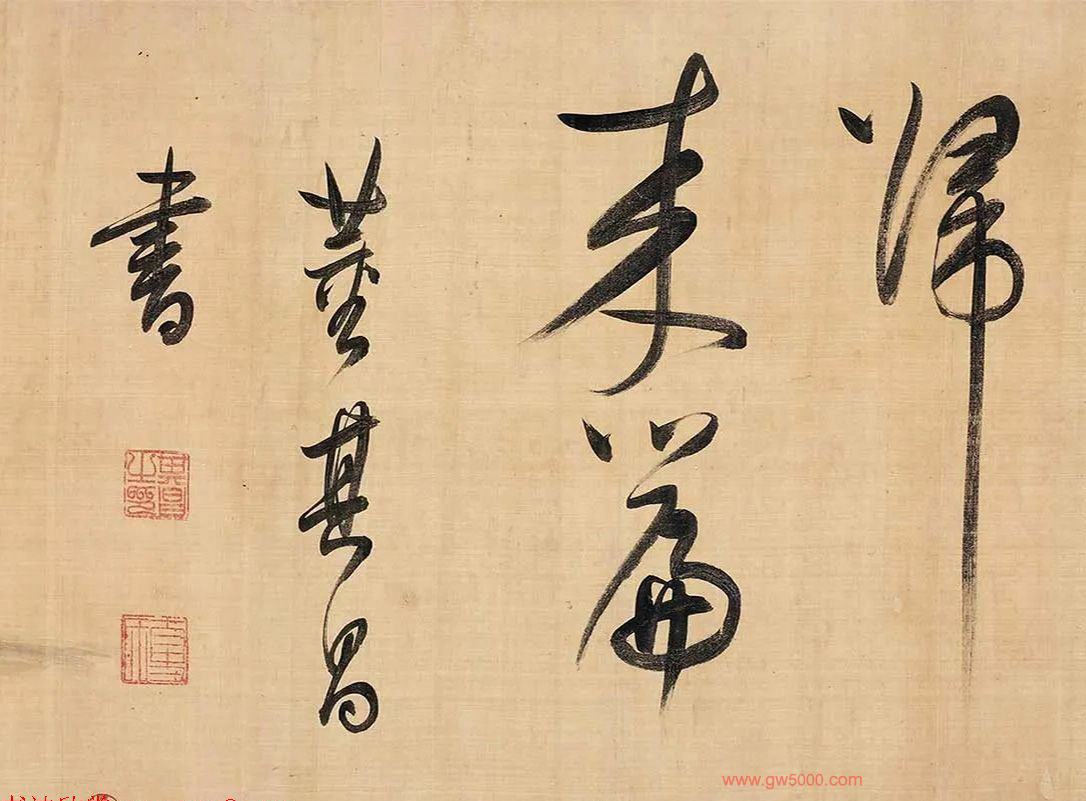 歸
來篇
董其昌
書
www.gw5000.com